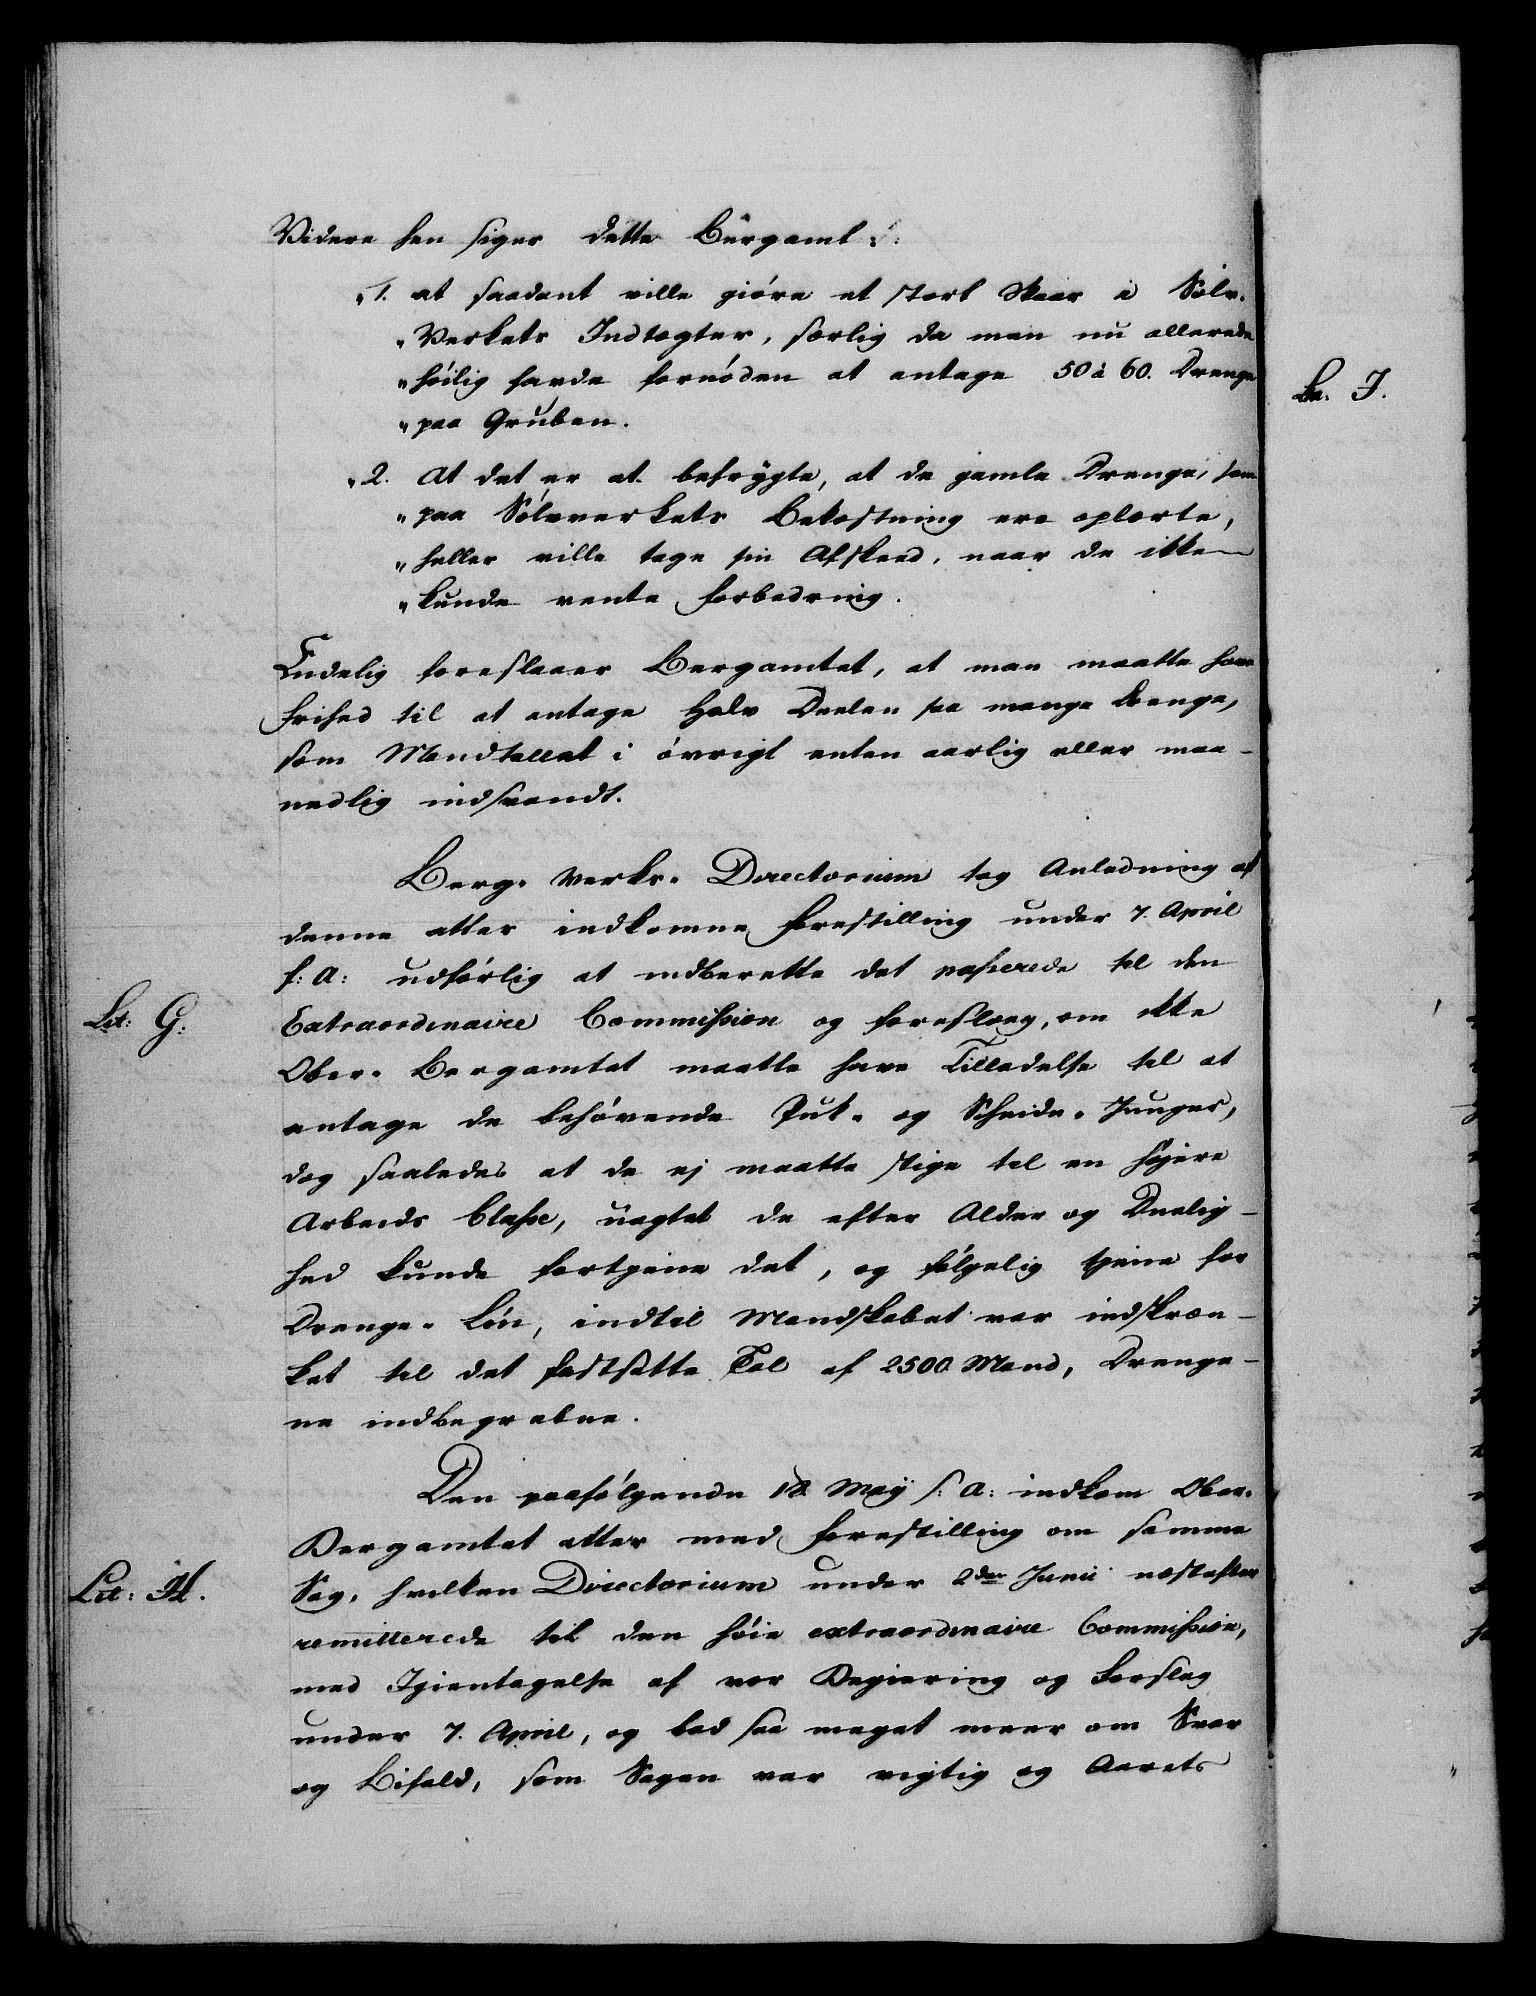 Videre hen siger dette Bergamt:
"1. at saadant ville giöre et stort Skaar i Sölv-
"Verkets Indtægter, særlig da man nu allerede
"höilig havde fornöden at antage 50 à 60. Drenge
"paa Gruben.
"2. At det er at befrygte, at de gamle Drenge, som
"paa Sölvverkets Bekostning ere oplærte,
"heller ville tage sin Afskeed, naar de ikke
"kunde vente Forbedring.
Endelig foreslaaer Bergamtet, at man maatte have
Frihed til at antage Halv Deelen saa mange Drenge,
som Mandtallet i övrigt enten aarlig eller maa-
nedlig indsvandt.
Berg-Verks-Directorium tog Anledning af
denne atter indkomne Forestilling under 7. April
s: A: udförlig at indberette det passerede til den
Extraordinaire Commission og foreslaog, om ikke
Ober-Bergamtet maatte have Tilladelse til at
antage de behövende Puk- og Scheide-Junger,
dog saaledes at de ej maatte stige til en højere
Arbeids Classe, uagtet de efter Alder og Duelig-
hed kunde fortjene det, og fölgelig tjene for
Drenge-Lön, indtil Mandskabet var indskræn-
ket til det fastsatte Tal af 2500 Mand, Drenge-
ne indbegrebne.
Lit: G.
Den paafölgende 18. Maÿ s: A: indkom Ober-
Bergamtet atter med Forestilling om samme
Sag, hvilken Directorium under 2den Junii næstefter
remitterede til den höie extraordinaire Commission,
med Igientagelse af vor Begiering og Forslag
under 7. April, og bad saa meget meer om Svar
og Bifald, som Sagen var vigtig og Aarets
Lit: H.
Lit: I.